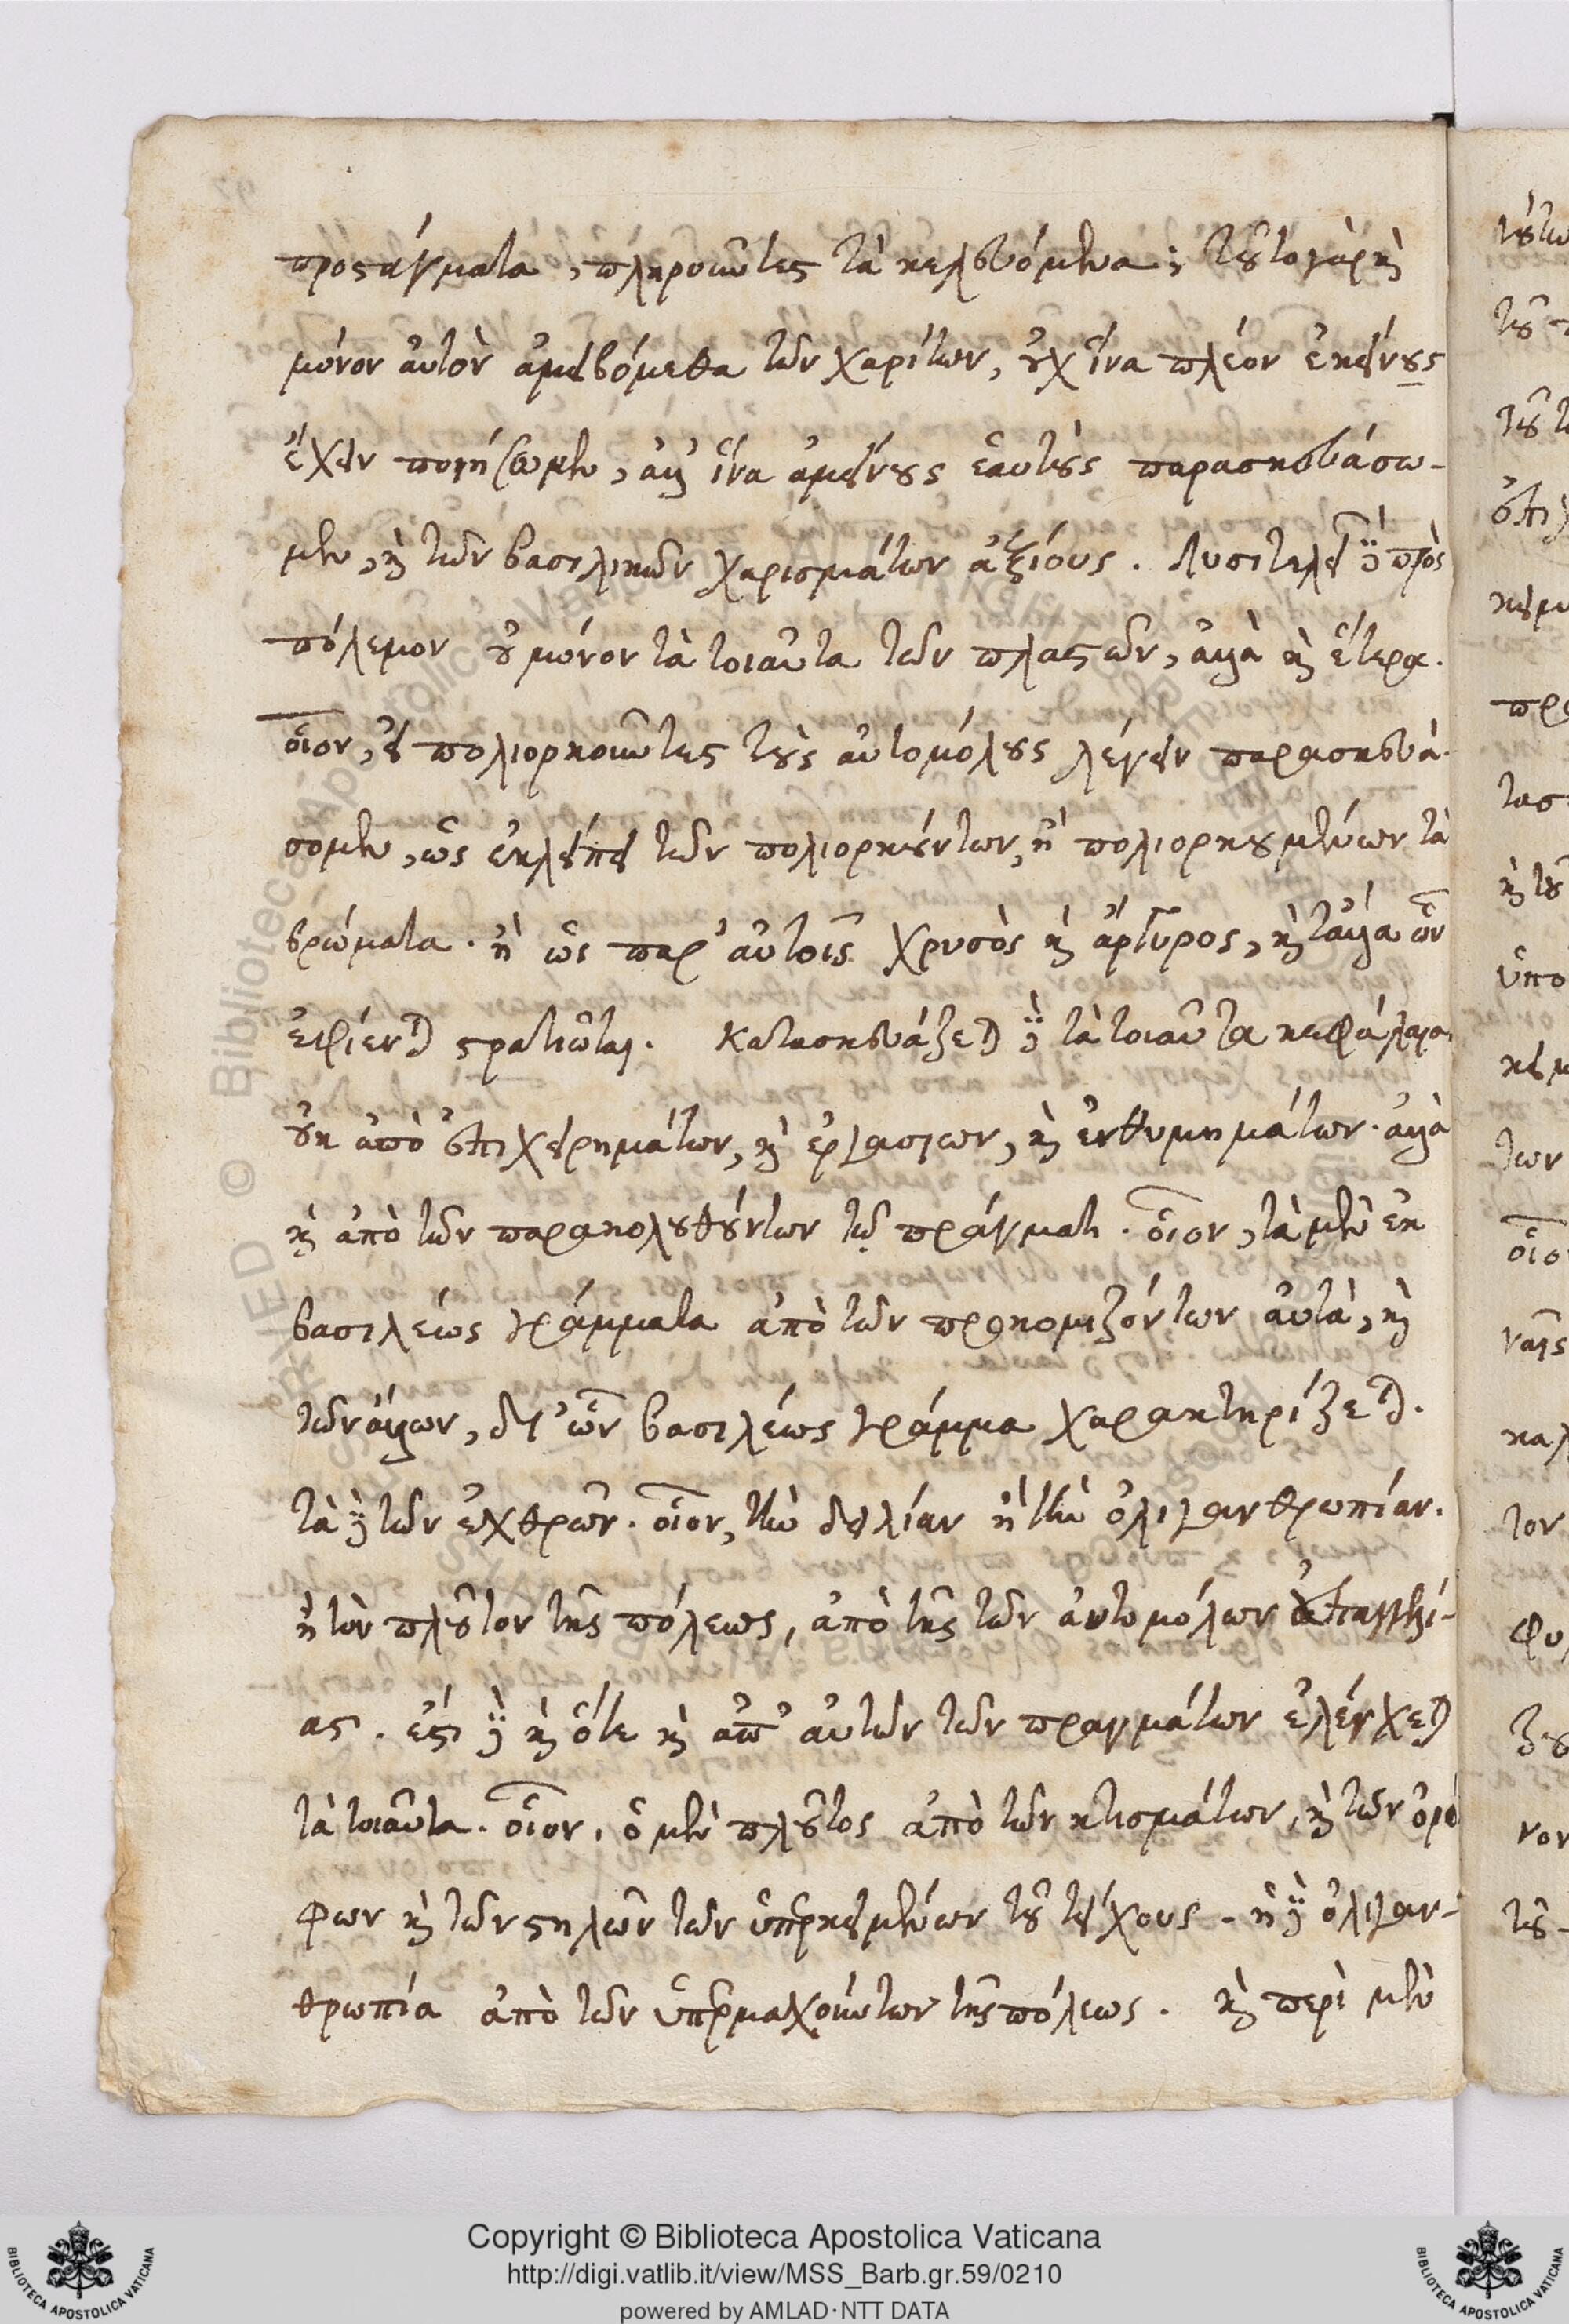 προστάγματα, πληροῦντες τὰ κελευόμενα; τοῦτο γὰρ καὶ
μόνον αὐτὸν ἀμειβόμεθα τῶν χαρίτων, οὐχ ἵνα πλέον ἐκείνους
ἔχειν ποιήσωμεν, ἀλλ' ἵνα ἀμείνους ἑαυτοὺς παρασκευάσω-
μεν, καὶ τῶν βασιλικῶν χαρισμάτων ἀξίους. Λυσιτελεῖ δὲ πρὸς
πόλεμον οὐ μόνον τὰ τοιαῦτα τῶν πλαστῶν, ἀλλὰ καὶ ἕτερα.
οἷον, εἰ πολιορκοῦντες τοὺς αὐτομόλους λέγειν παρασκευά-
σομεν, ὡς ἐκλείπει τῶν πολιορκούντων, ἢ πολιορκουμένων τὰ
βρώματα. ἢ ὡς παρ' αὐτοῖς χρυσὸς καὶ ἄργυρος, καὶ τἄλλα ὧν
ἐφίενται στρατιῶται. Κατασκευάζεται δὲ τὰ τοιαῦτα κεφάλαια
οὐκ ἀπὸ ἐπιχειρημάτων, καὶ ἐργασιῶν, καὶ ἐνθυμημάτων. ἀλλὰ
καὶ ἀπὸ τῶν παρακολουθούντων τῷ πράγματι. οἷον, τὰ μὲν ἐκ
βασιλέως γράμματα ἀπὸ τῶν προκομιζόντων αὐτὰ, καὶ
τῶν ἄλλων, δι' ὧν βασιλέως γράμμα χαρακτηρίζεται.
τὰ δὲ τῶν ἐχθρῶν. οἷον, τὴν δειλίαν ἢ τὴν ὀλιγανθρωπίαν.
ἢ τὸν πλοῦτον τῆς πόλεως, ἀπὸ τῆς τῶν αὐτομόλων ἐπαγγελί-
ας. ἔστι δὲ καὶ ὅτε καὶ ἀπ' αὐτῶν τῶν πραγμάτων ἐλέγχεται
τὰ τοιαῦτα. οἷον, ὁ μὲν πλοῦτος ἀπὸ τῶν κτισμάτων, καὶ τῶν ὀρό
φων καὶ τῶν στηλῶν τῶν ὑπερκειμένων τοῦ τείχους. ἡ δὲ ὀλιγαν-
θρωπία ἀπὸ τῶν ὑπερμαχούντων τῆς πόλεως. καὶ περὶ μὲν
Copyright © Biblioteca Apostolica Vaticana
http://digi.vatlib.it/view/MSS_Barb.gr.59/0210
powered by AMLAD·NTT DATA
BIBLIOTECA APOSTOLICA VATICANA
BIBLIOTECA APOSTOLICA VATICANA